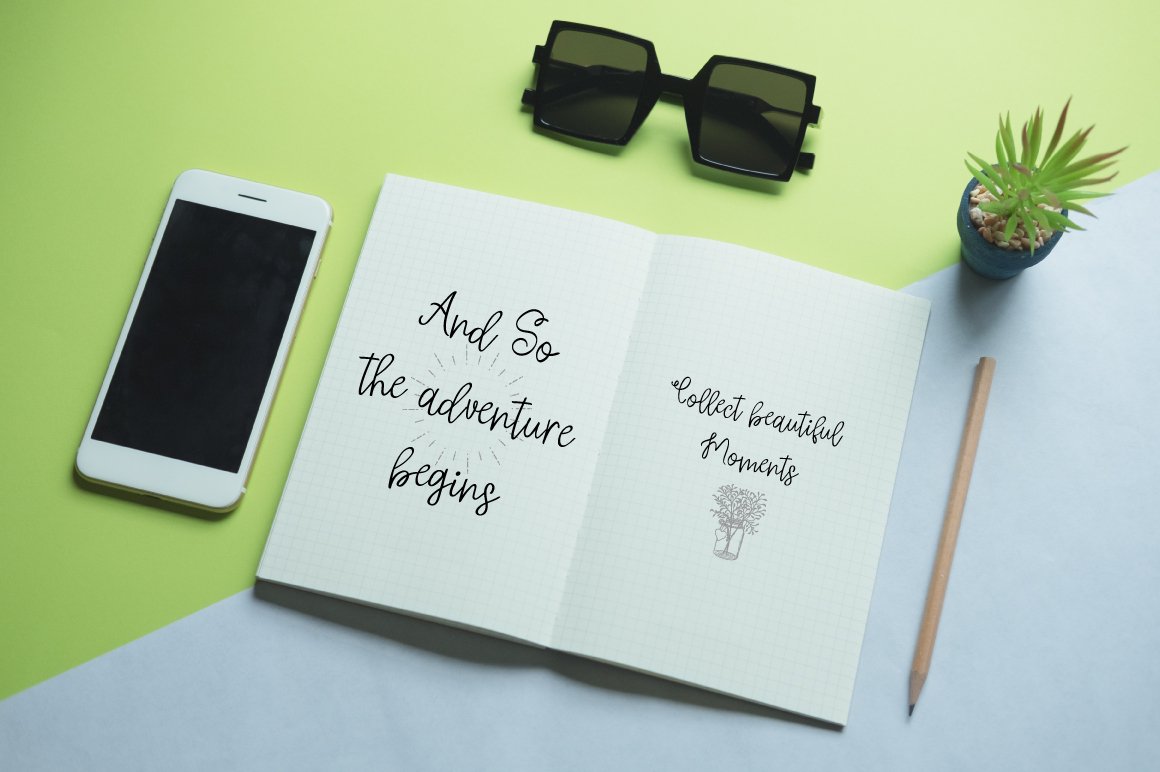 And So
the adventure
begins
Collect beautiful
Moments